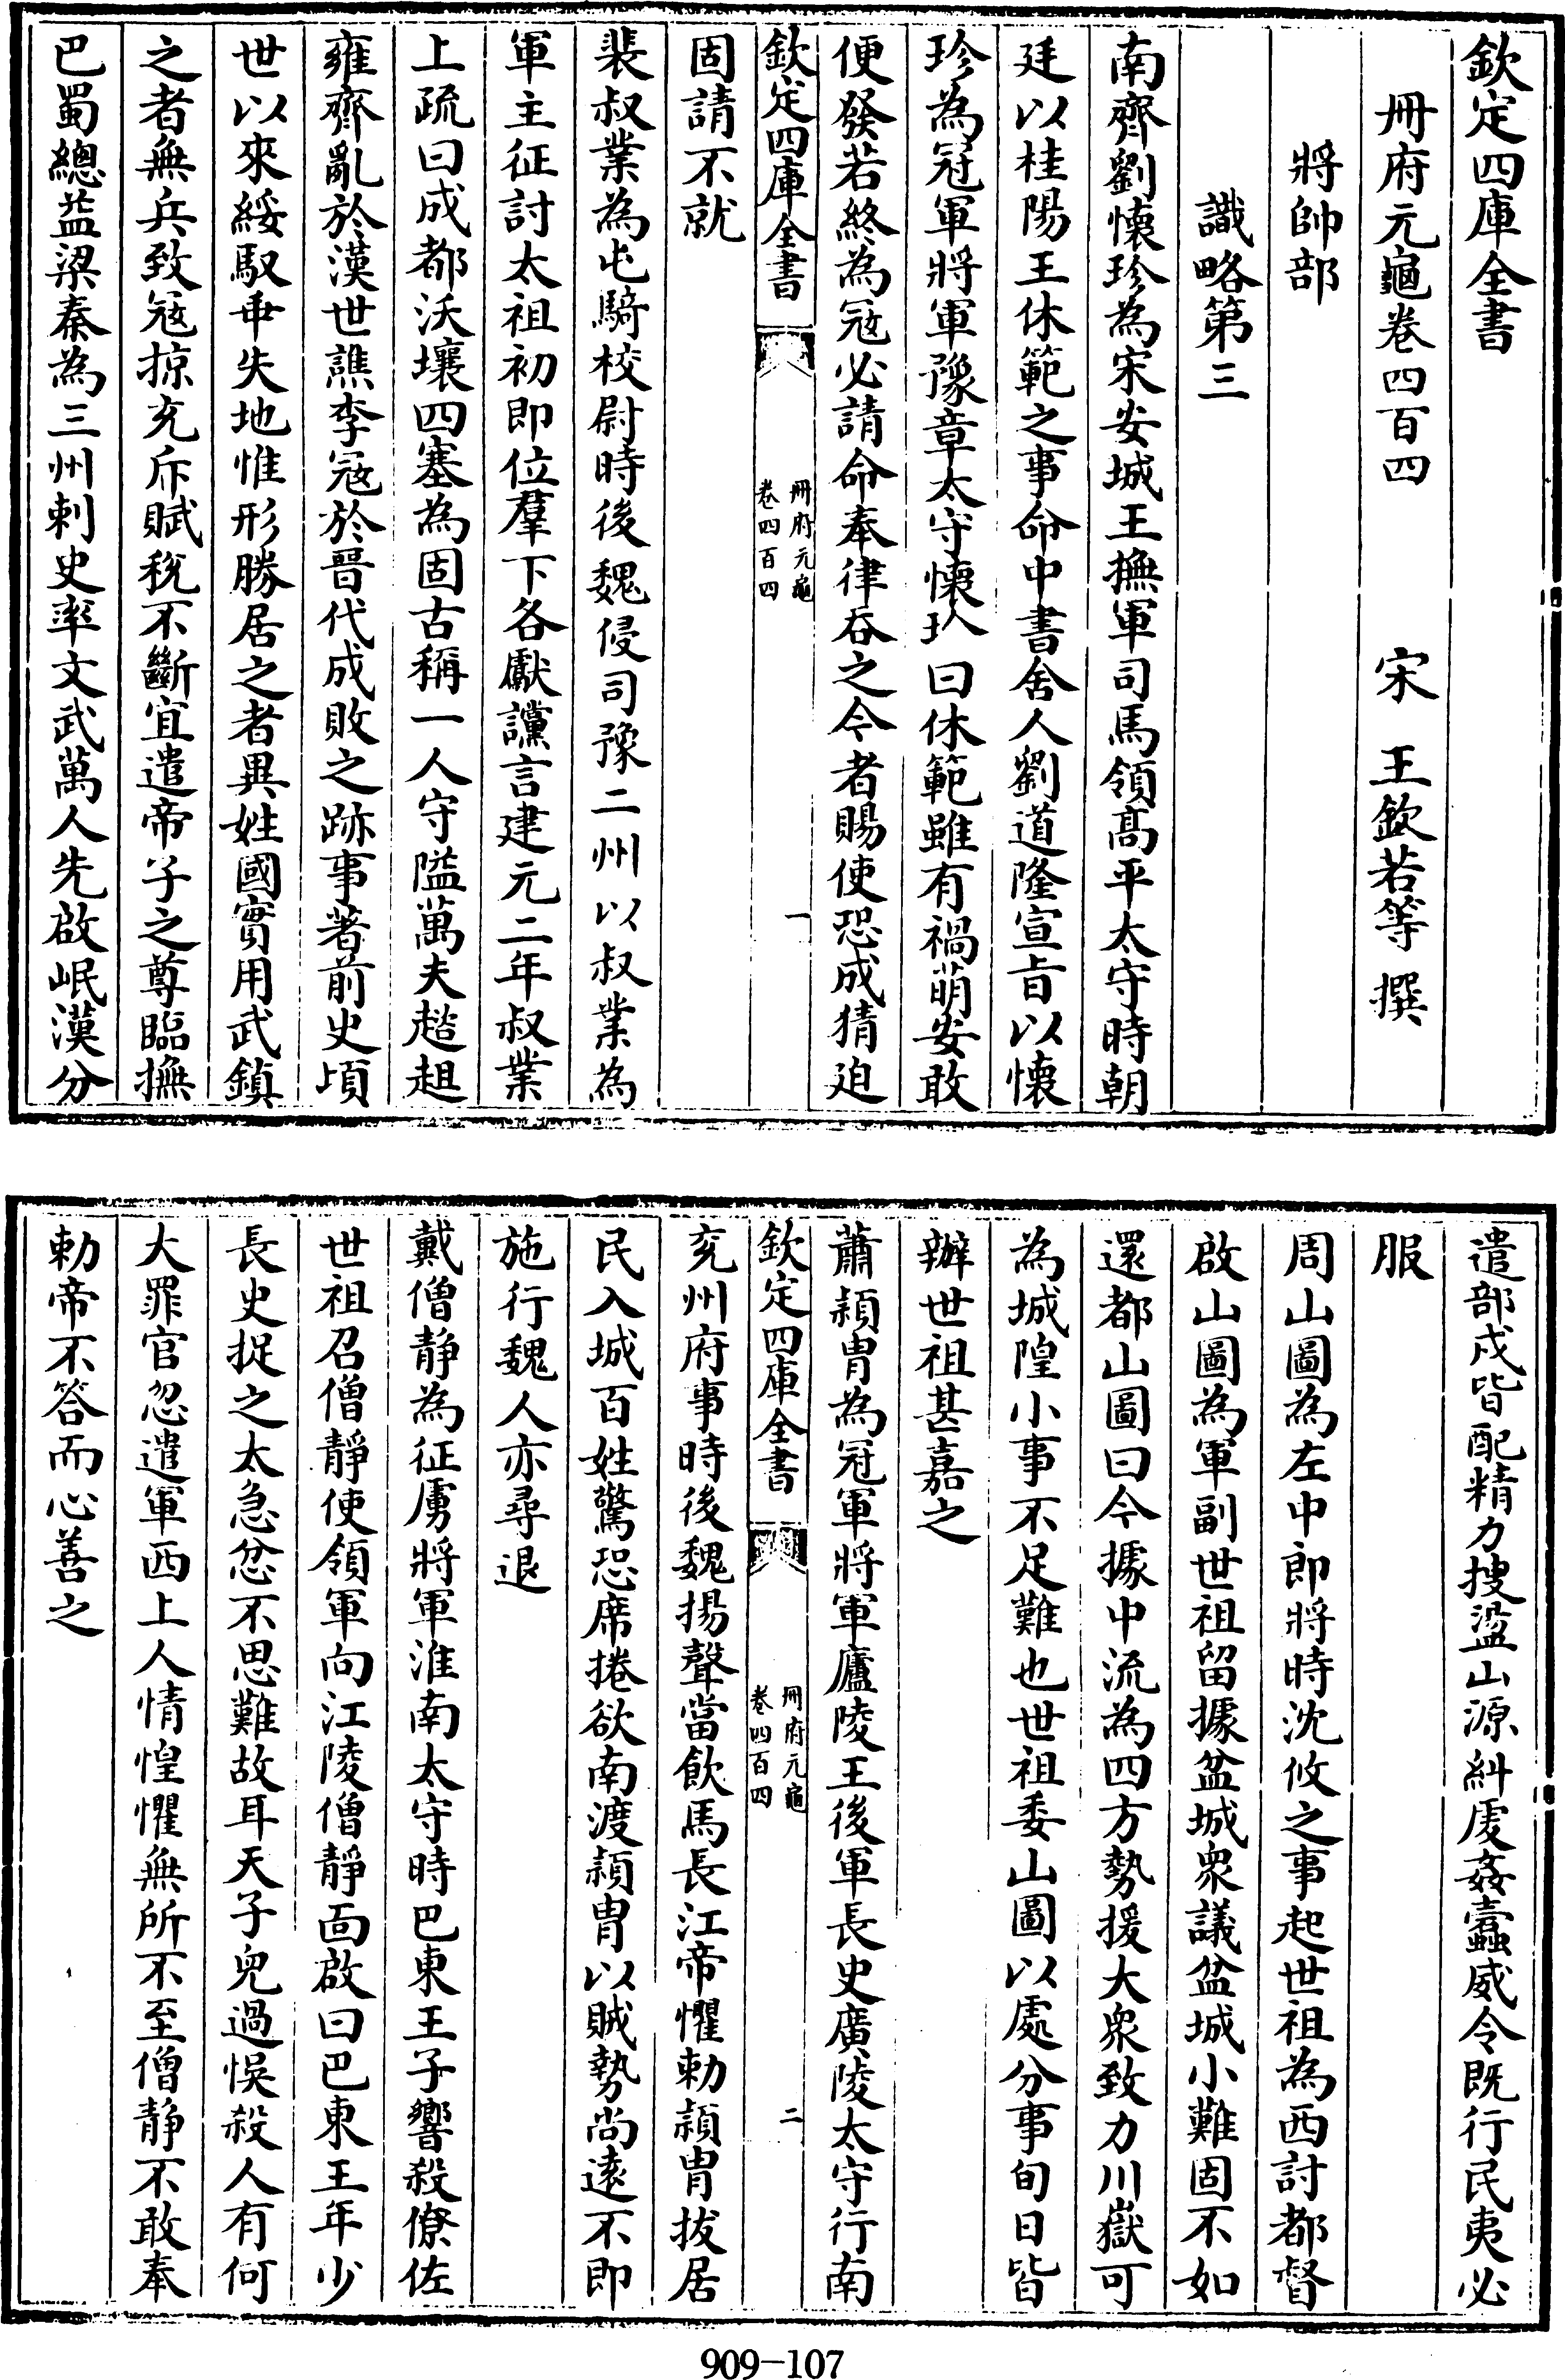 欽定四庫全書
冊府元龜卷四百四　宋　王欽若等　撰
將帥部
識略第三
南齊劉懷珍為宋安城王撫軍司馬領髙平太守時朝
廷以桂陽王休範之事命中書舍人劉道隆宣旨以懷
珍為冠軍將軍豫章太守懷珍曰休範雖有禍萌安敢
便發若終為冦必請命奉律吞之今者賜使恐成猜廹
欽定四庫全書　冊府元龜卷四百四　一
固請不就
裴叔業為屯騎校尉時後魏侵司豫二州以叔業為
軍主征討太祖初即位羣下各獻讜言建元二年叔業
上疏曰成都沃壤四塞為固古稱一人守隘萬夫趦趄
雍齊亂於漢世譙李冦於晉代成敗之跡事著前史頃
世以來綏馭乖失地惟形勝居之者異姓國實用武鎮
之者無兵致冦掠充斥賦稅不斷宜遣帝子之尊臨撫
巴蜀總益梁秦為三州刺史率文武萬人先啟岷漢分
遣部戍皆配精力搜盪山源糾䖍姦蠧威令既行民夷必
服
周山圖為左中郎將時沈攸之事起世祖為西討都督
啟山圖為軍副世祖留據盆城衆議盆城小難固不如
還都山圖曰今據中流為四方勢援大衆致力川嶽可
為城隍小事不足難也世祖委山圖以處分事旬日皆
辦世祖甚嘉之
蕭頴胄為冠軍將軍廬陵王後軍長史廣陵太守行南
欽定四庫全書　冊府元龜卷四百四　二
兖州府事時後魏揚聲當飲馬長江帝懼勅頴胄拔居
民入城百姓驚恐席捲欲南渡頴胄以賊勢尚遠不即
施行魏人亦尋退
戴僧靜為征虜將軍淮南太守時巴東王子響殺僚佐
世祖召僧靜使領軍向江陵僧靜面啟曰巴東王年少
長史捉之太急忿不思難故耳天子兒過悞殺人有何
大罪官忽遣軍西上人情惶懼無所不至僧靜不敢奉
勅帝不答而心善之
909-107